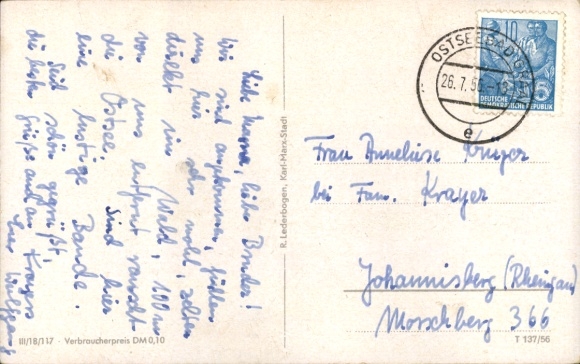 Liebe Mama, lieber Bruder!
Wir sind angekommen, fühlen
uns hier sehr wohl, zelten
direkt im Wald, 100 m
von uns entfernt rauscht
die Ostsee. Sind hier
eine lustige Bande.
Seid schön gegrüßt,
die besten Grüße auch an Krayers
Euer Wolfgang
R. Lederbogen, Karl-Marx-Stadt
OSTSEEBAD
26.7.56
e
10
5
DEUTSCHE
DEMOKRATISCHE REPUBLIK
Frau Anneliese
bei Fam. Krayer
Johannisberg (Rheingau)
Morschberg 366
III/18/117 · Verbraucherpreis DM 0,10
T 137/56